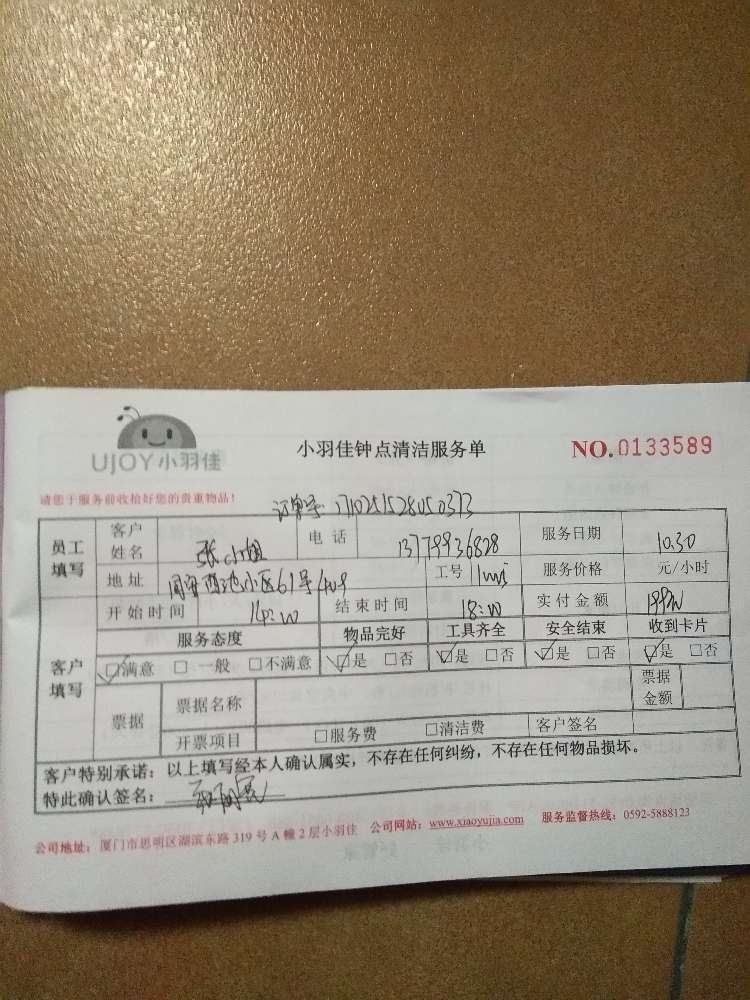 UJOY小羽佳
小羽佳钟点清洁服务单
NO.0133589
请您于服务前收拾好您的贵重物品!
订单号: 1710251528050373
员工填写 客户姓名 张小姐 电话 13779936828 服务日期 10.30
地址 小区61号409 工号 服务价格 元/小时
开始时间 14:00 结束时间 18:00 实付金额
客户填写 服务态度 物品完好 工具齐全 安全结束 收到卡片
☑满意 □一般 □不满意 ☑是 □否 ☑是 □否 ☑是 □否 ☑是 □否
票据 票据名称 票据金额
开票项目 □服务费 □清洁费 客户签名
客户特别承诺：以上填写经本人确认属实，不存在任何纠纷，不存在任何物品损坏。
特此确认签名：
公司地址：厦门市思明区湖滨东路 319 号 A 幢 2 层小羽佳 公司网站：www.xiaoyujia.com 服务监督热线：0592-5888123